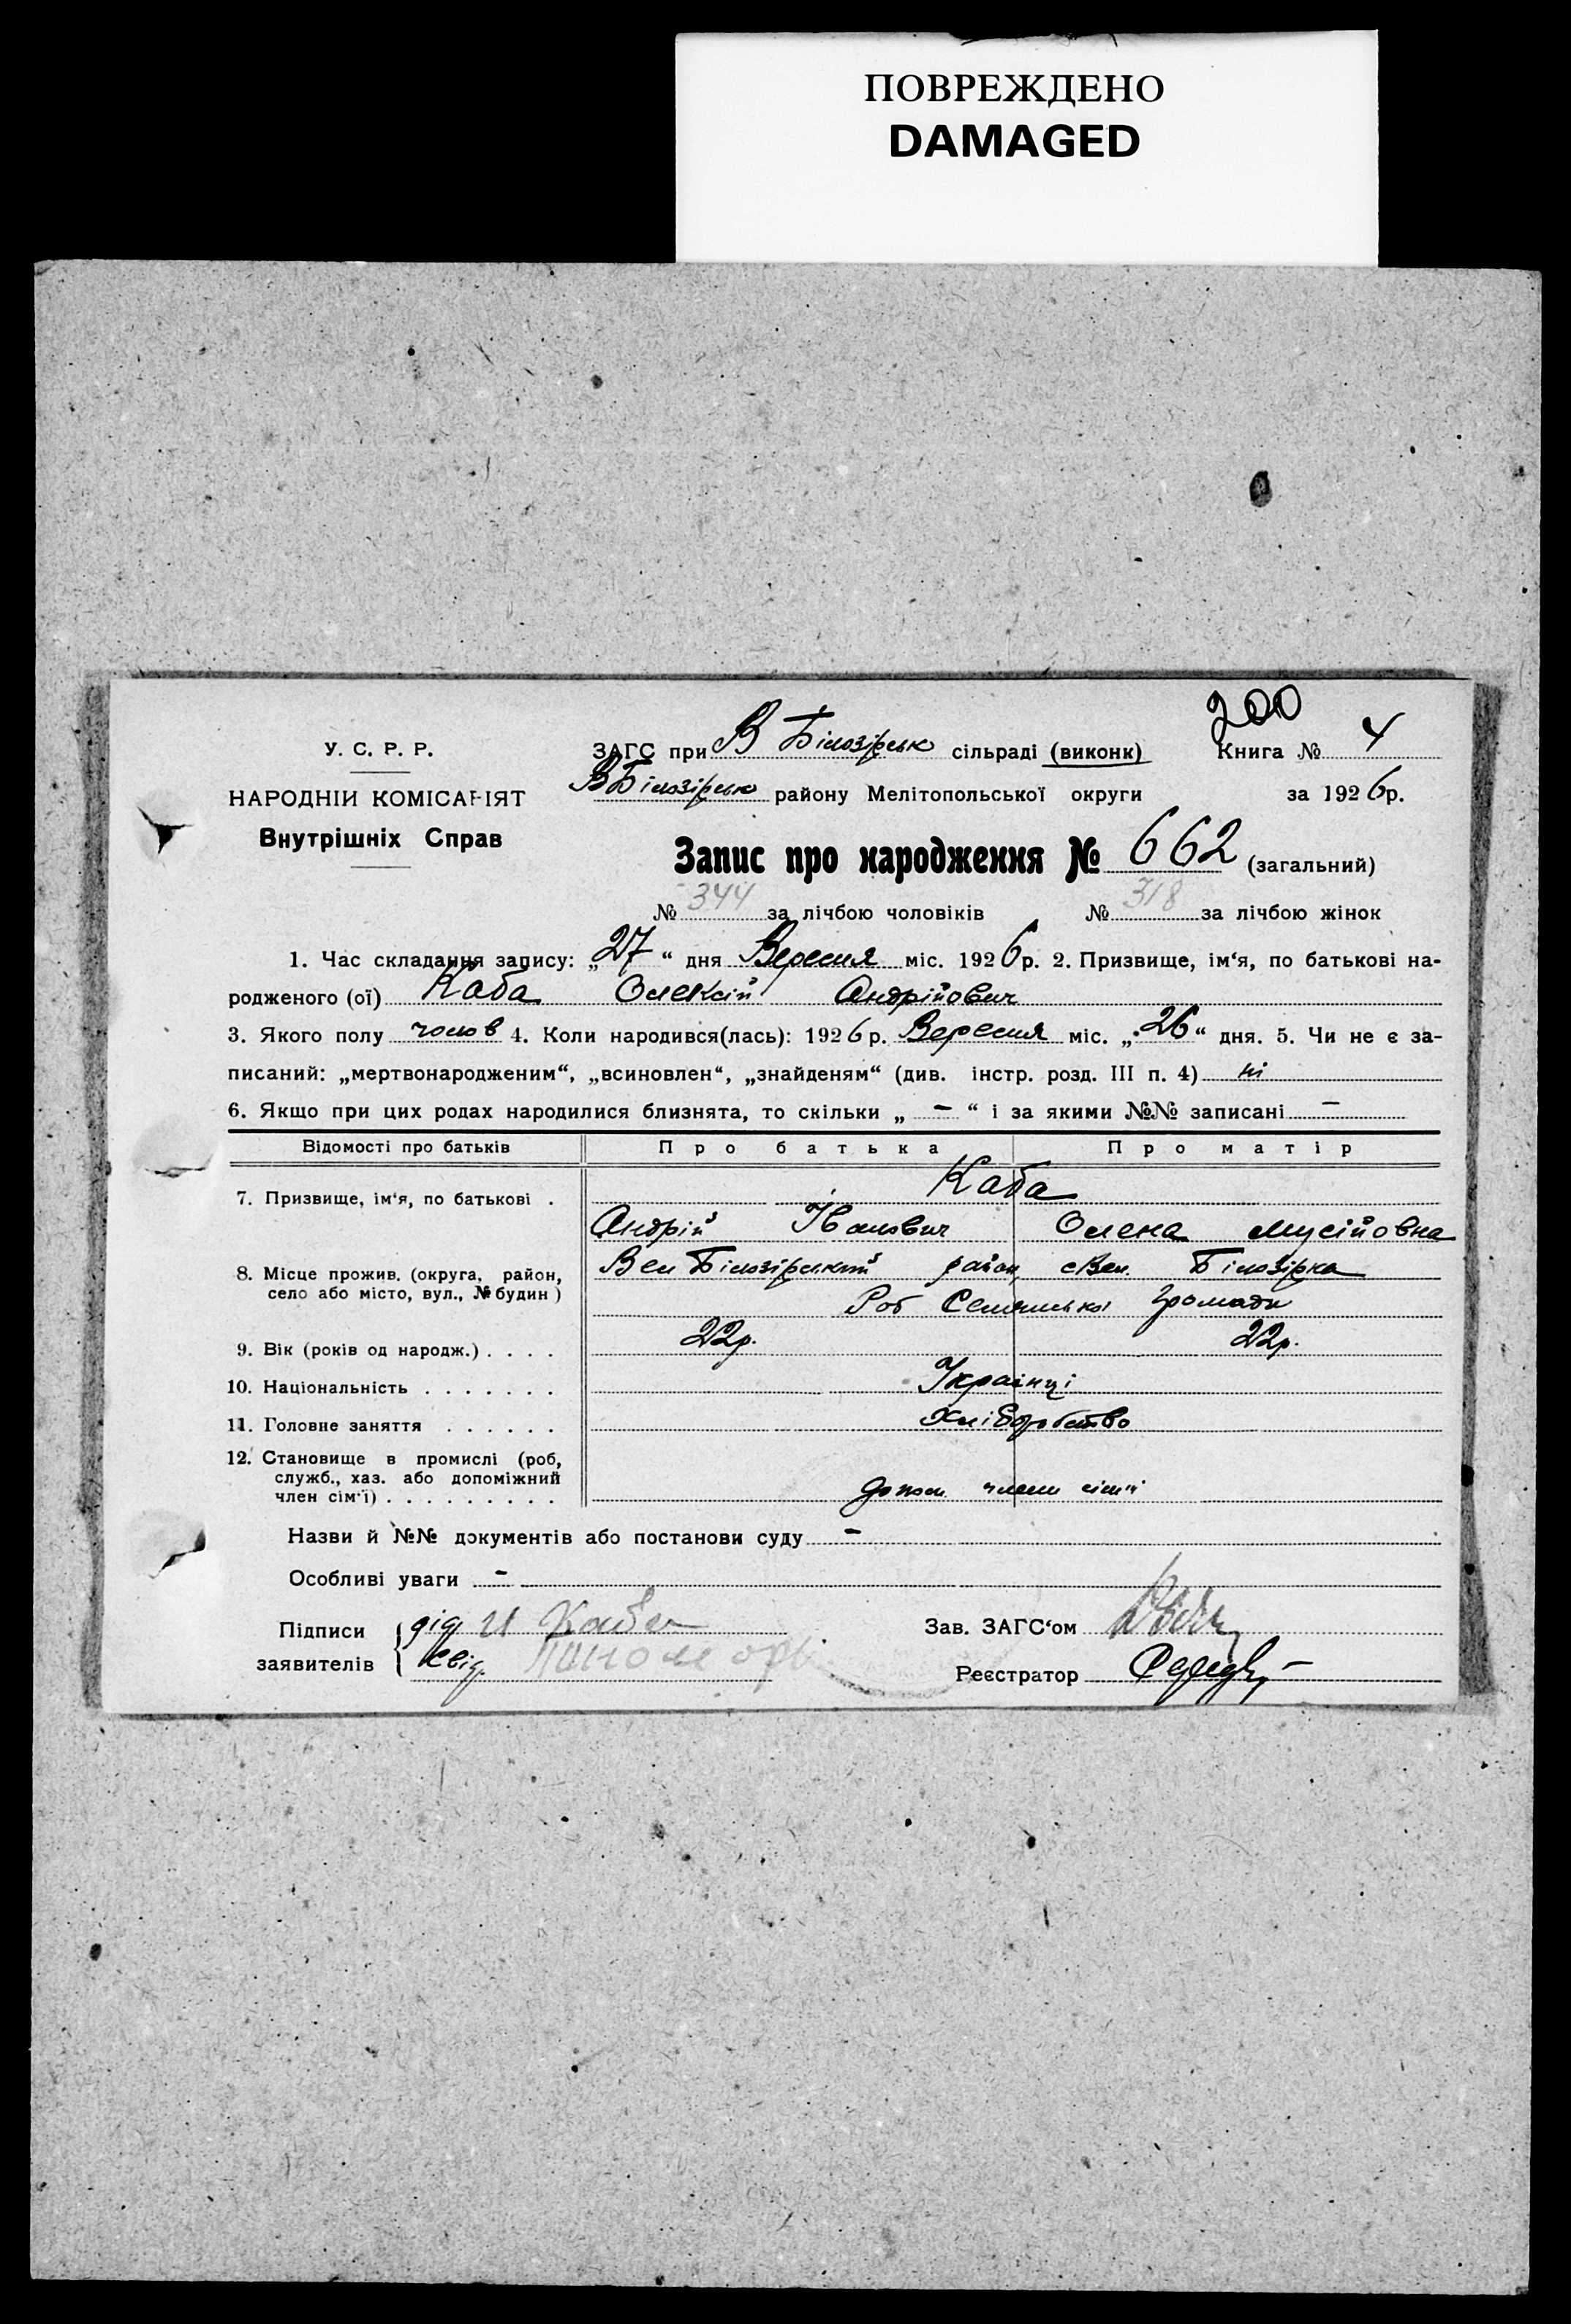 ПОВРЕЖДЕНО
DAMAGED
200
У. С. Р. Р.
НАРОДНІЙ КОМІСАРІЯТ
Внутрішніх Справ
ЗАГС при В Білозірськ сільраді (виконк) Книга № 4
ВБілозірськ району Мелітопольської округи за 1926р.
Запис про народження № 662 (загальний)
№ 344 за лічбою чоловіків № 318 за лічбою жінок
1. Час складання запису: „27“ дня Вересня міс. 1926р. 2. Призвище, ім‘я, по батькові на-
родженого (ої) Каба Олексій Андрійович
3. Якого полу чолов 4. Коли народився(лась): 1926р. Вересня міс. „26“ дня. 5. Чи не є за-
писаний: „мертвонародженим“, „всиновлен“, „знайденям“ (див. інстр. розд. III п. 4) ні
6. Якщо при цих родах народилися близнята, то скільки „ – “ і за якими №№ записані –
Відомості про батьків Про батька Про матір
7. Призвище, ім‘я, по батькові . Каба
Андрій Іванович Олена Мусійовна
8. Місце прожив. (округа, район, село або місто, вул., № будин) Вел Білозірський район, с Вел. Білозірка
Роб Семенської Громади
9. Вік (років од народж.) . . . . 22р. 22р.
10. Національність . . . . . . . Українці
11. Головне заняття . . . . . . Хліборобство
12. Становище в промислі (роб,
служб., хаз. або допоміжний
член сім‘ї) . . . . . . . . . допом. члени сімї
Назви й №№ документів або постанови суду –
Особливі уваги –
Підписи заявителів { дід И Каба
свід. Пономарь
Зав. ЗАГС‘ом
Реєстратор